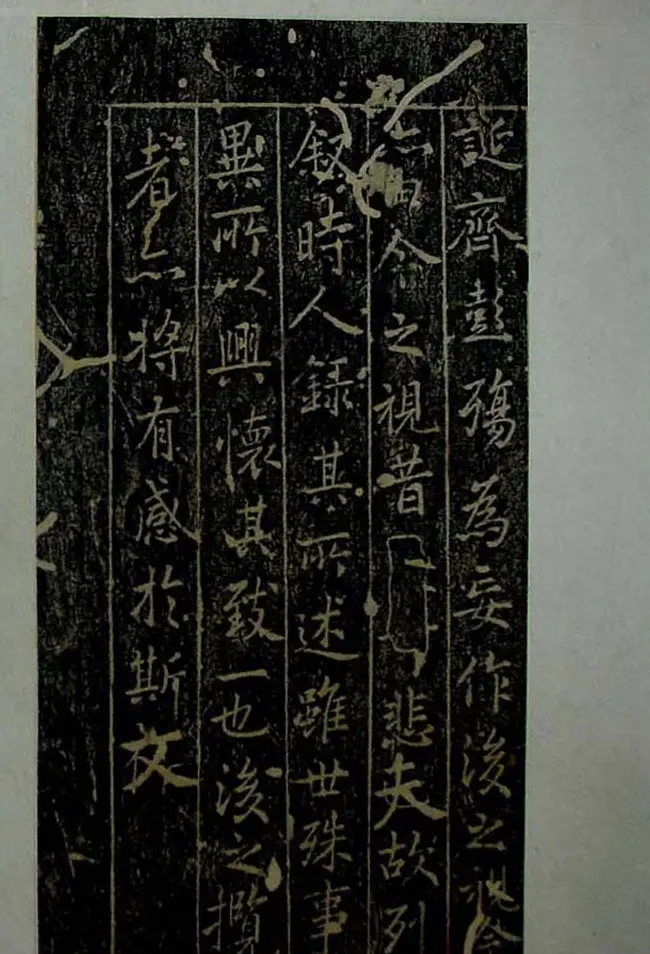 誕齊彭殤為妄作後之視今
亦由今之視昔悲夫故列
敘時人録其所述雖世殊事
異所以興懷其致一也後之攬
者亦將有感於斯文